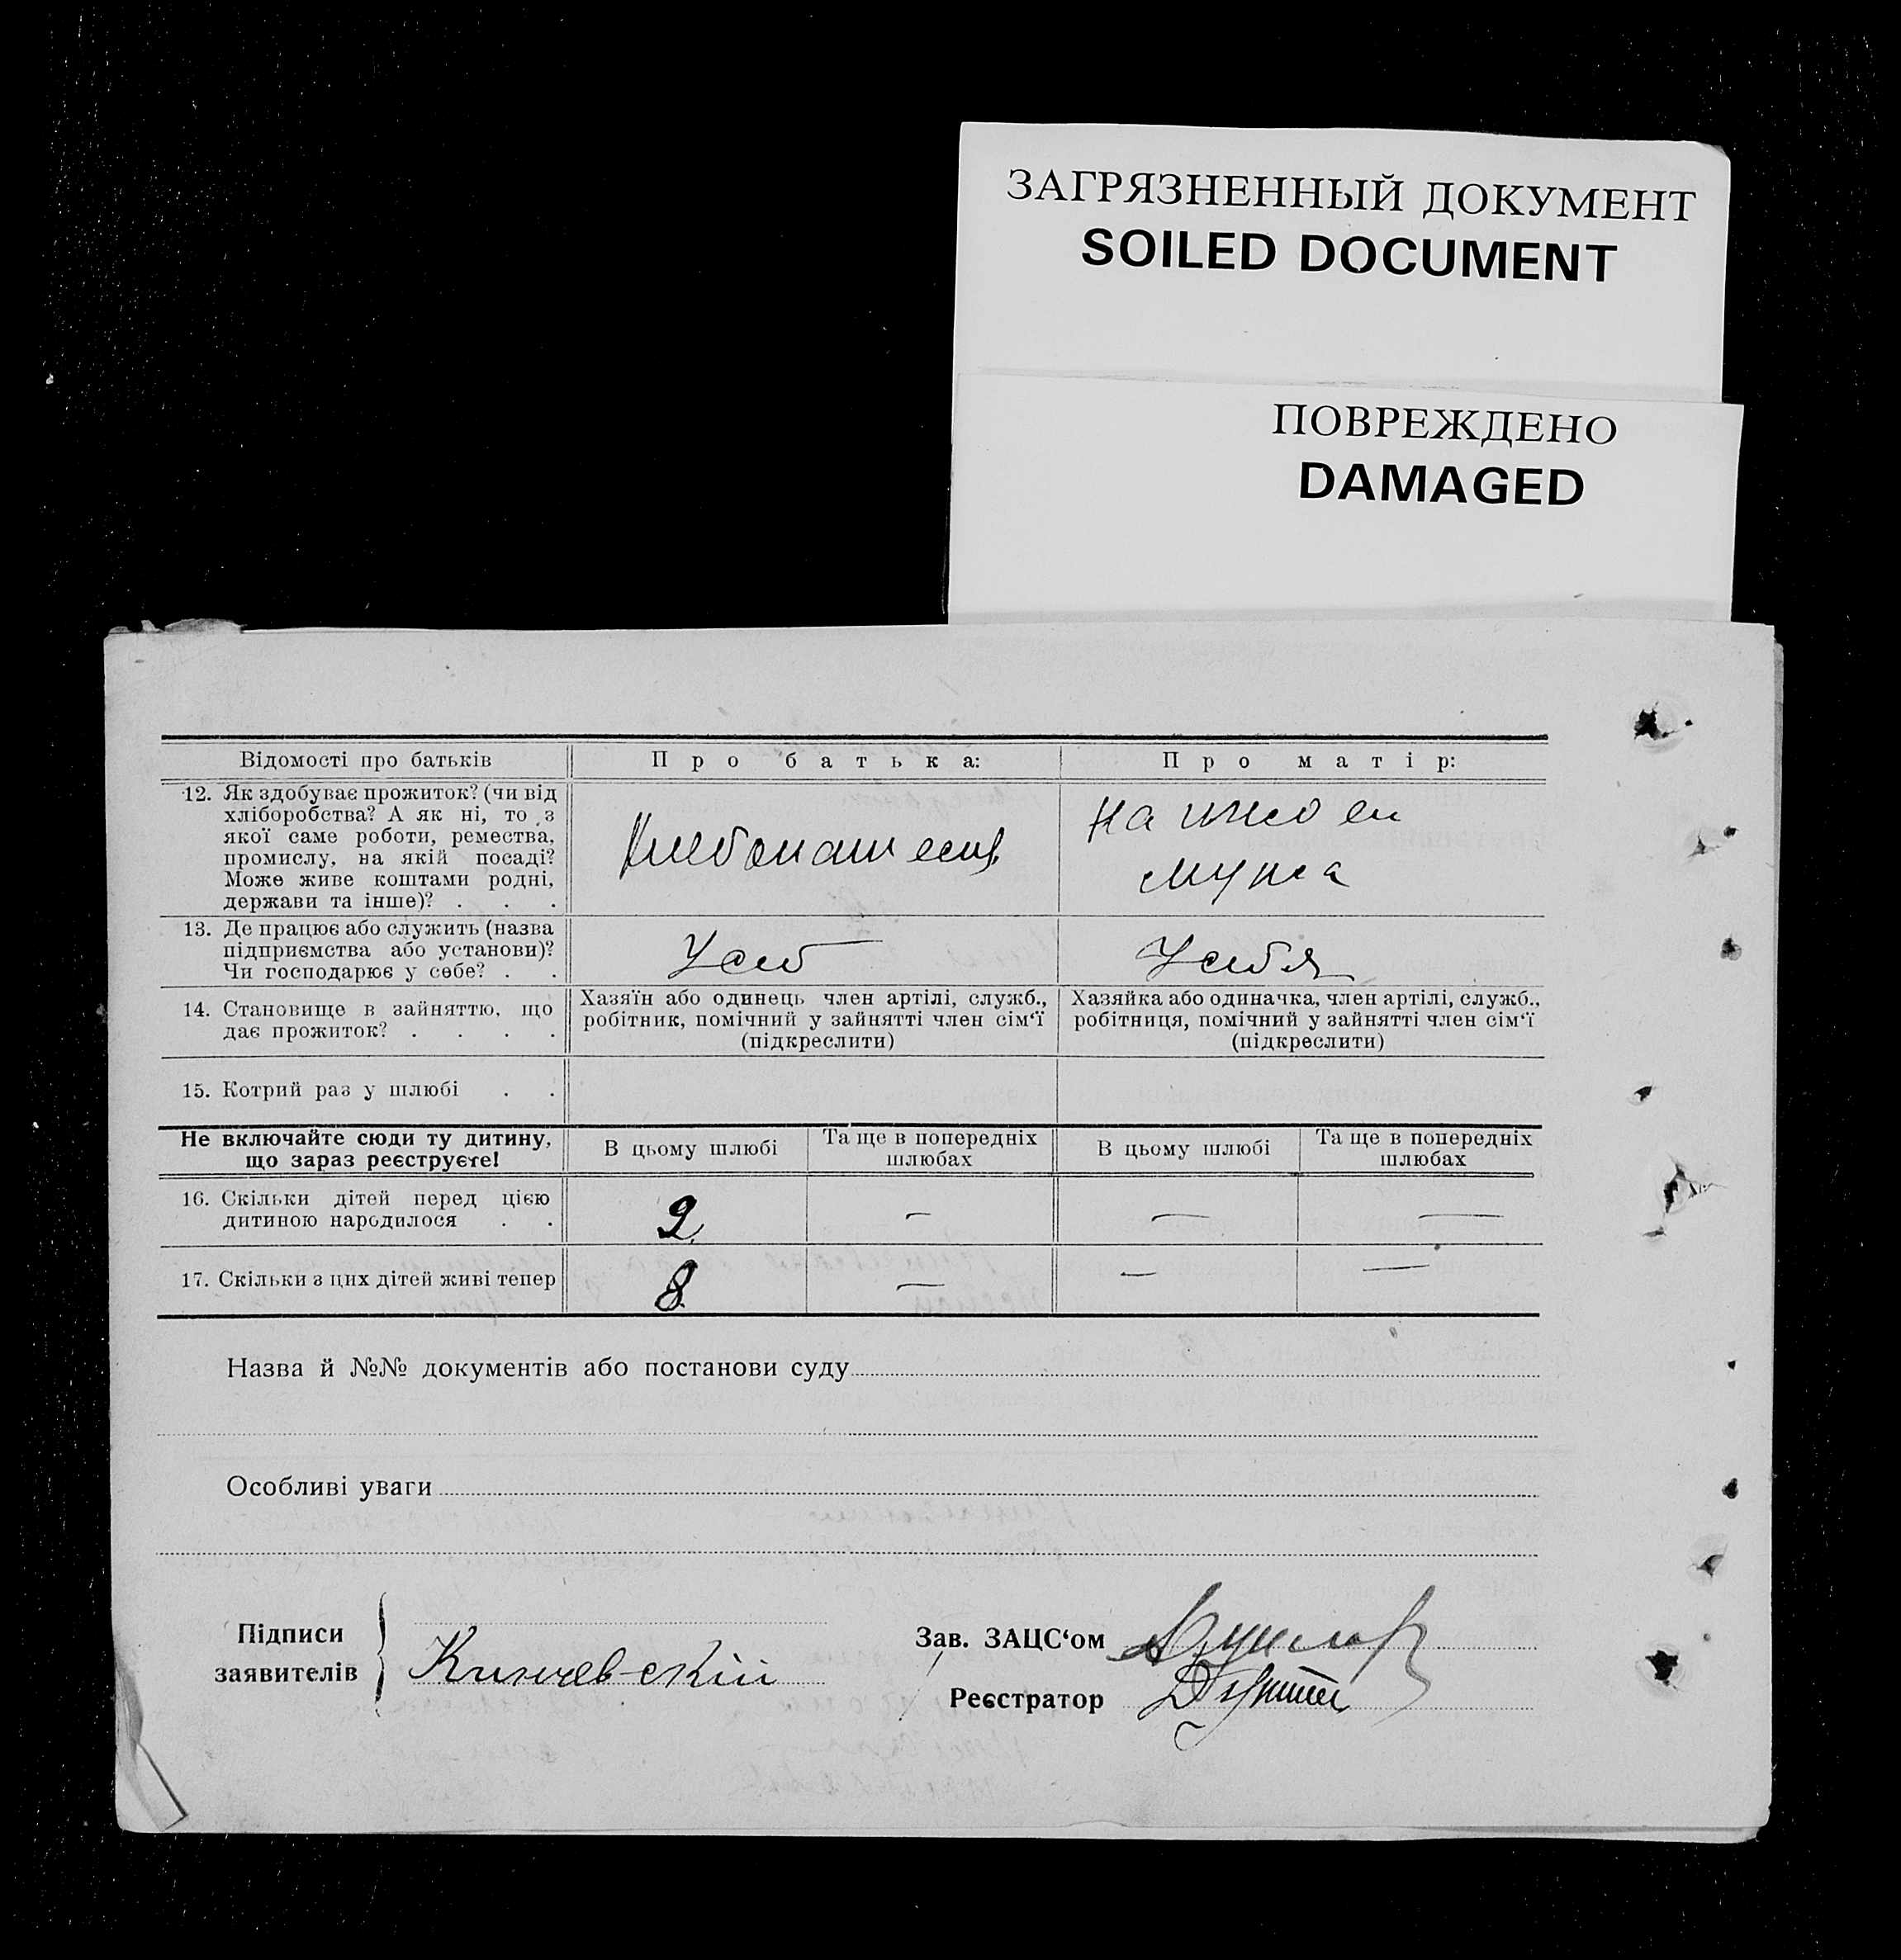 ЗАГРЯЗНЕННЫЙ ДОКУМЕНТ
SOILED DOCUMENT
ПОВРЕЖДЕНО
DAMAGED
Відомості про батьків
Про батька:
Про матір:
12. Як здобуває прожиток? (чи від
хліборобства? А як ні, то з
якої саме роботи, ремества,
промислу, на якій посаді?
Може живе коштами родні,
держави та інше)? . . .
на шиє ен
мужа
13. Де працює або служить (назва
підприємства або установи)?
Чи господарює у себе? . .
Усеб
Усебя
14. Становище в зайняттю, що
дає прожиток? . . . .
Хазяїн або одинець член артілі, служб.,
робітник, помічний у зайнятті член сім‘ї
(підкреслити)
Хазяйка або одиначка, член артілі, служб.,
робітниця, помічний у зайнятті член сім‘ї
(підкреслити)
15. Котрий раз у шлюбі . .
Не включайте сюди ту дитину,
що зараз реєструєте!
В цьому шлюбі
Та ще в попередніх
шлюбах
В цьому шлюбі
Та ще в попередніх
шлюбах
16. Скільки дітей перед цією
дитиною народилося . .
9 — — —
17. Скільки з цих дітей живі тепер
8 — — —
Назва й №№ документів або постанови суду
Особливі уваги
Підписи
заявителів
Кинчевский
Зав. ЗАЦС‘ом
Реєстратор